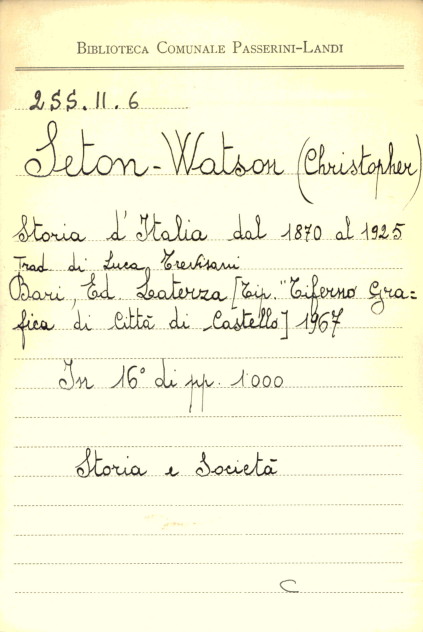 BIBLIOTECA COMUNALE PASSERINI-LANDI
255.11.6
Seton-Watson (Christopher)
Storia d'Italia dal 1870 al 1925
Trad. di Luca Trevisani
Bari, Ed. Laterza [Tip. "Tiferno Gra=
fica di Città di Castello] 1967
In 16° di pp. 1000
Storia e Società
C